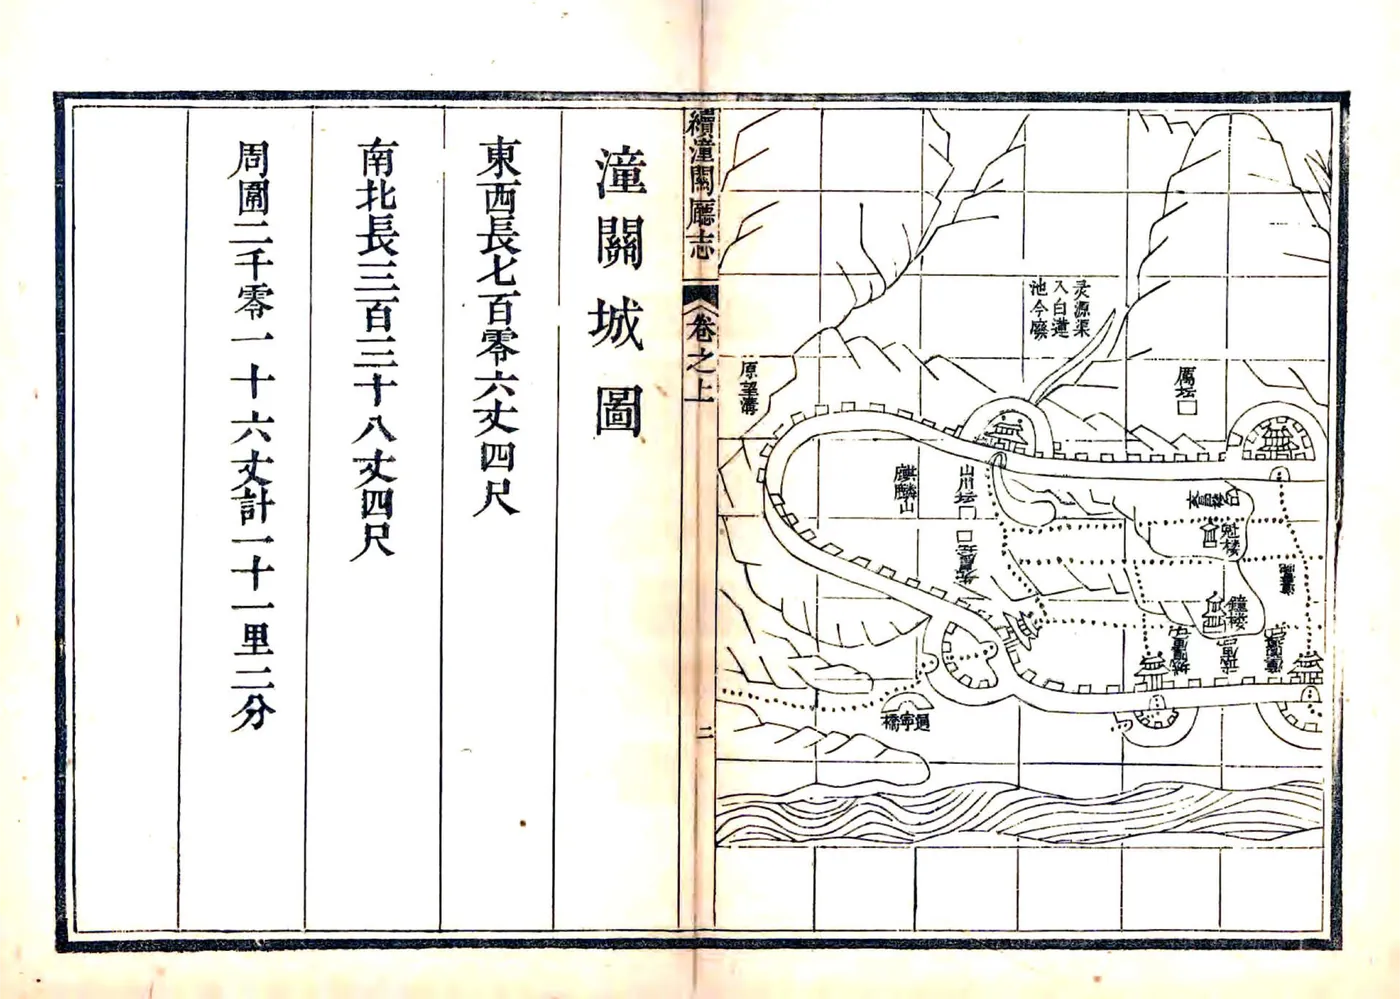 灵源渠
入白蓮
池今廢
厲坛
原望溝
麒麟山
山川坛
魁楼
鐘楼
過寧橋
續潼關廳志
卷之上
二
潼關城圖
東西長七百零六丈四尺
南北長三百三十八丈四尺
周圍二千零一十六丈計一十一里二分